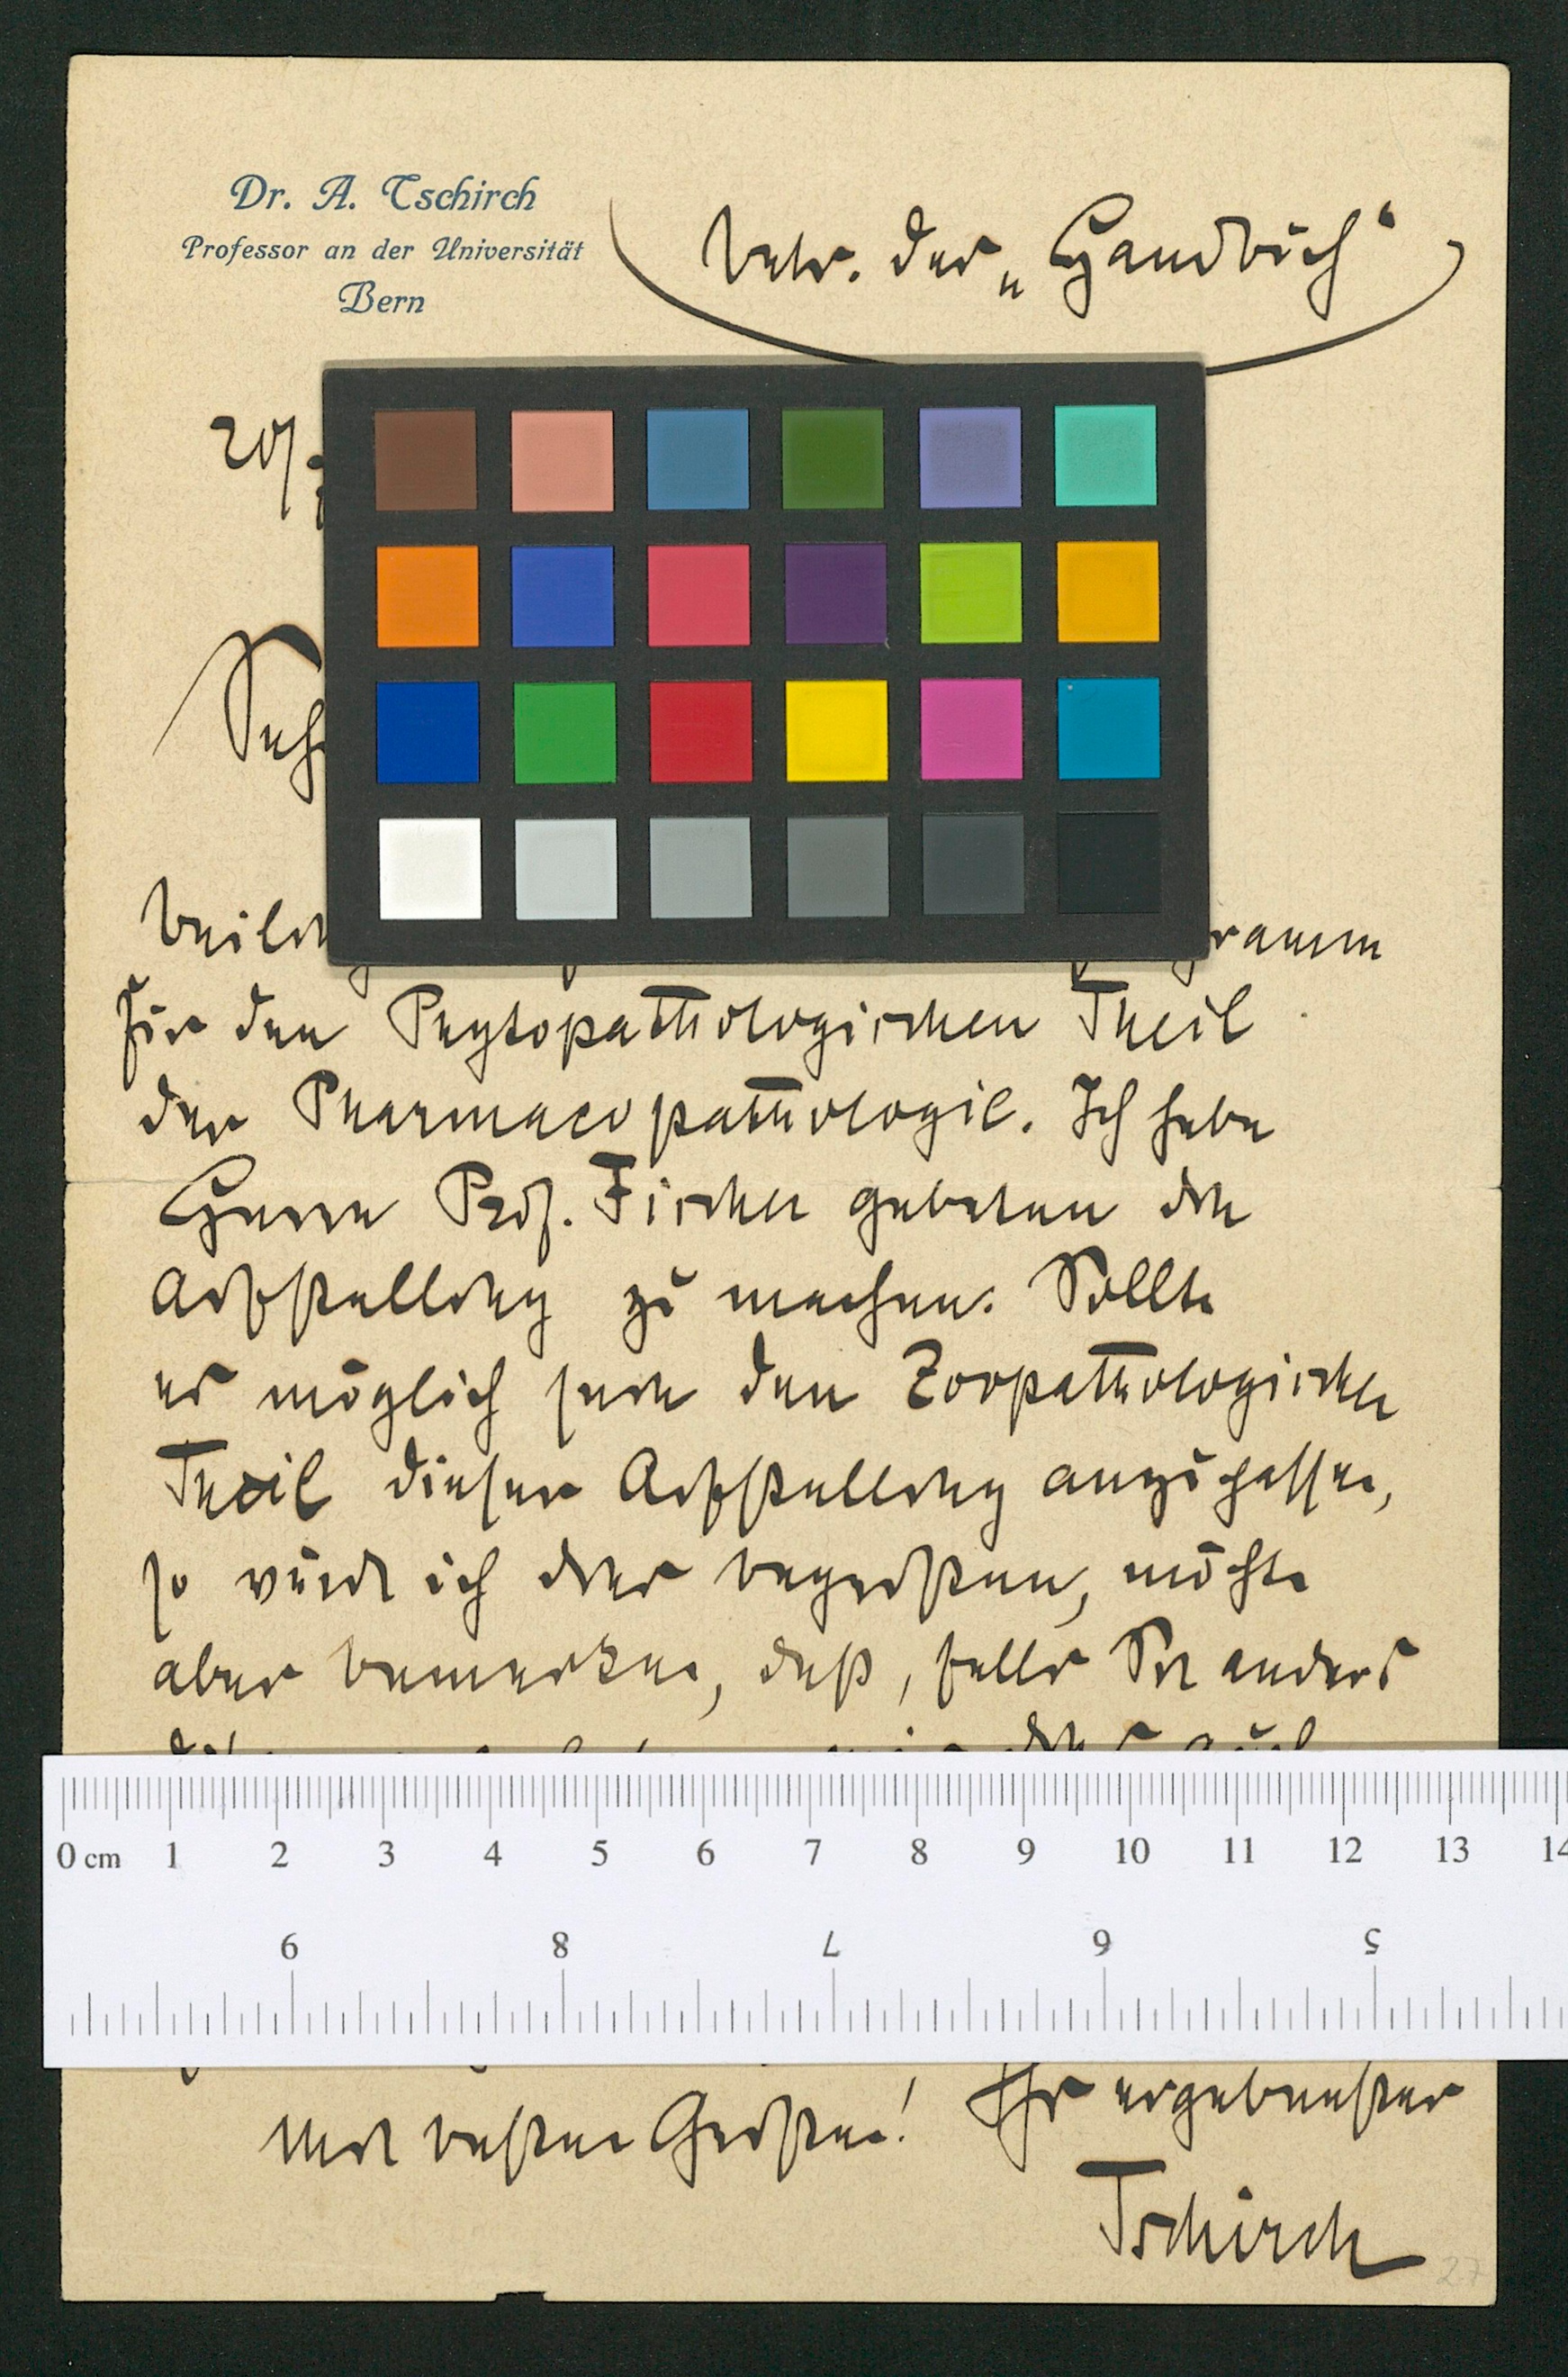 Dr. A. Tschirch
Professor an der Universität
Bern
Betr. das „Handbuch“
20/
Seh
Beilie gramm
für den Phytopathologischen Theil
der Pharmacopathologie. Ich habe
Herrn Prof. Fischer gebeten die
Aufstellung zu machen. Sollte
es möglich sein den Zoopathologischen
Theil dieser Aufstellung anzupassen,
so würde ich dies begrüßen, möchte
aber bemerken, daß, falls Sie anders
auch
0 cm 1 2 3 4 5 6 7 8 9 10 11 12 13 14
9 8 7 6 5
Ihr ergebenster
Mit besten Grüßen!
Tschirch
27